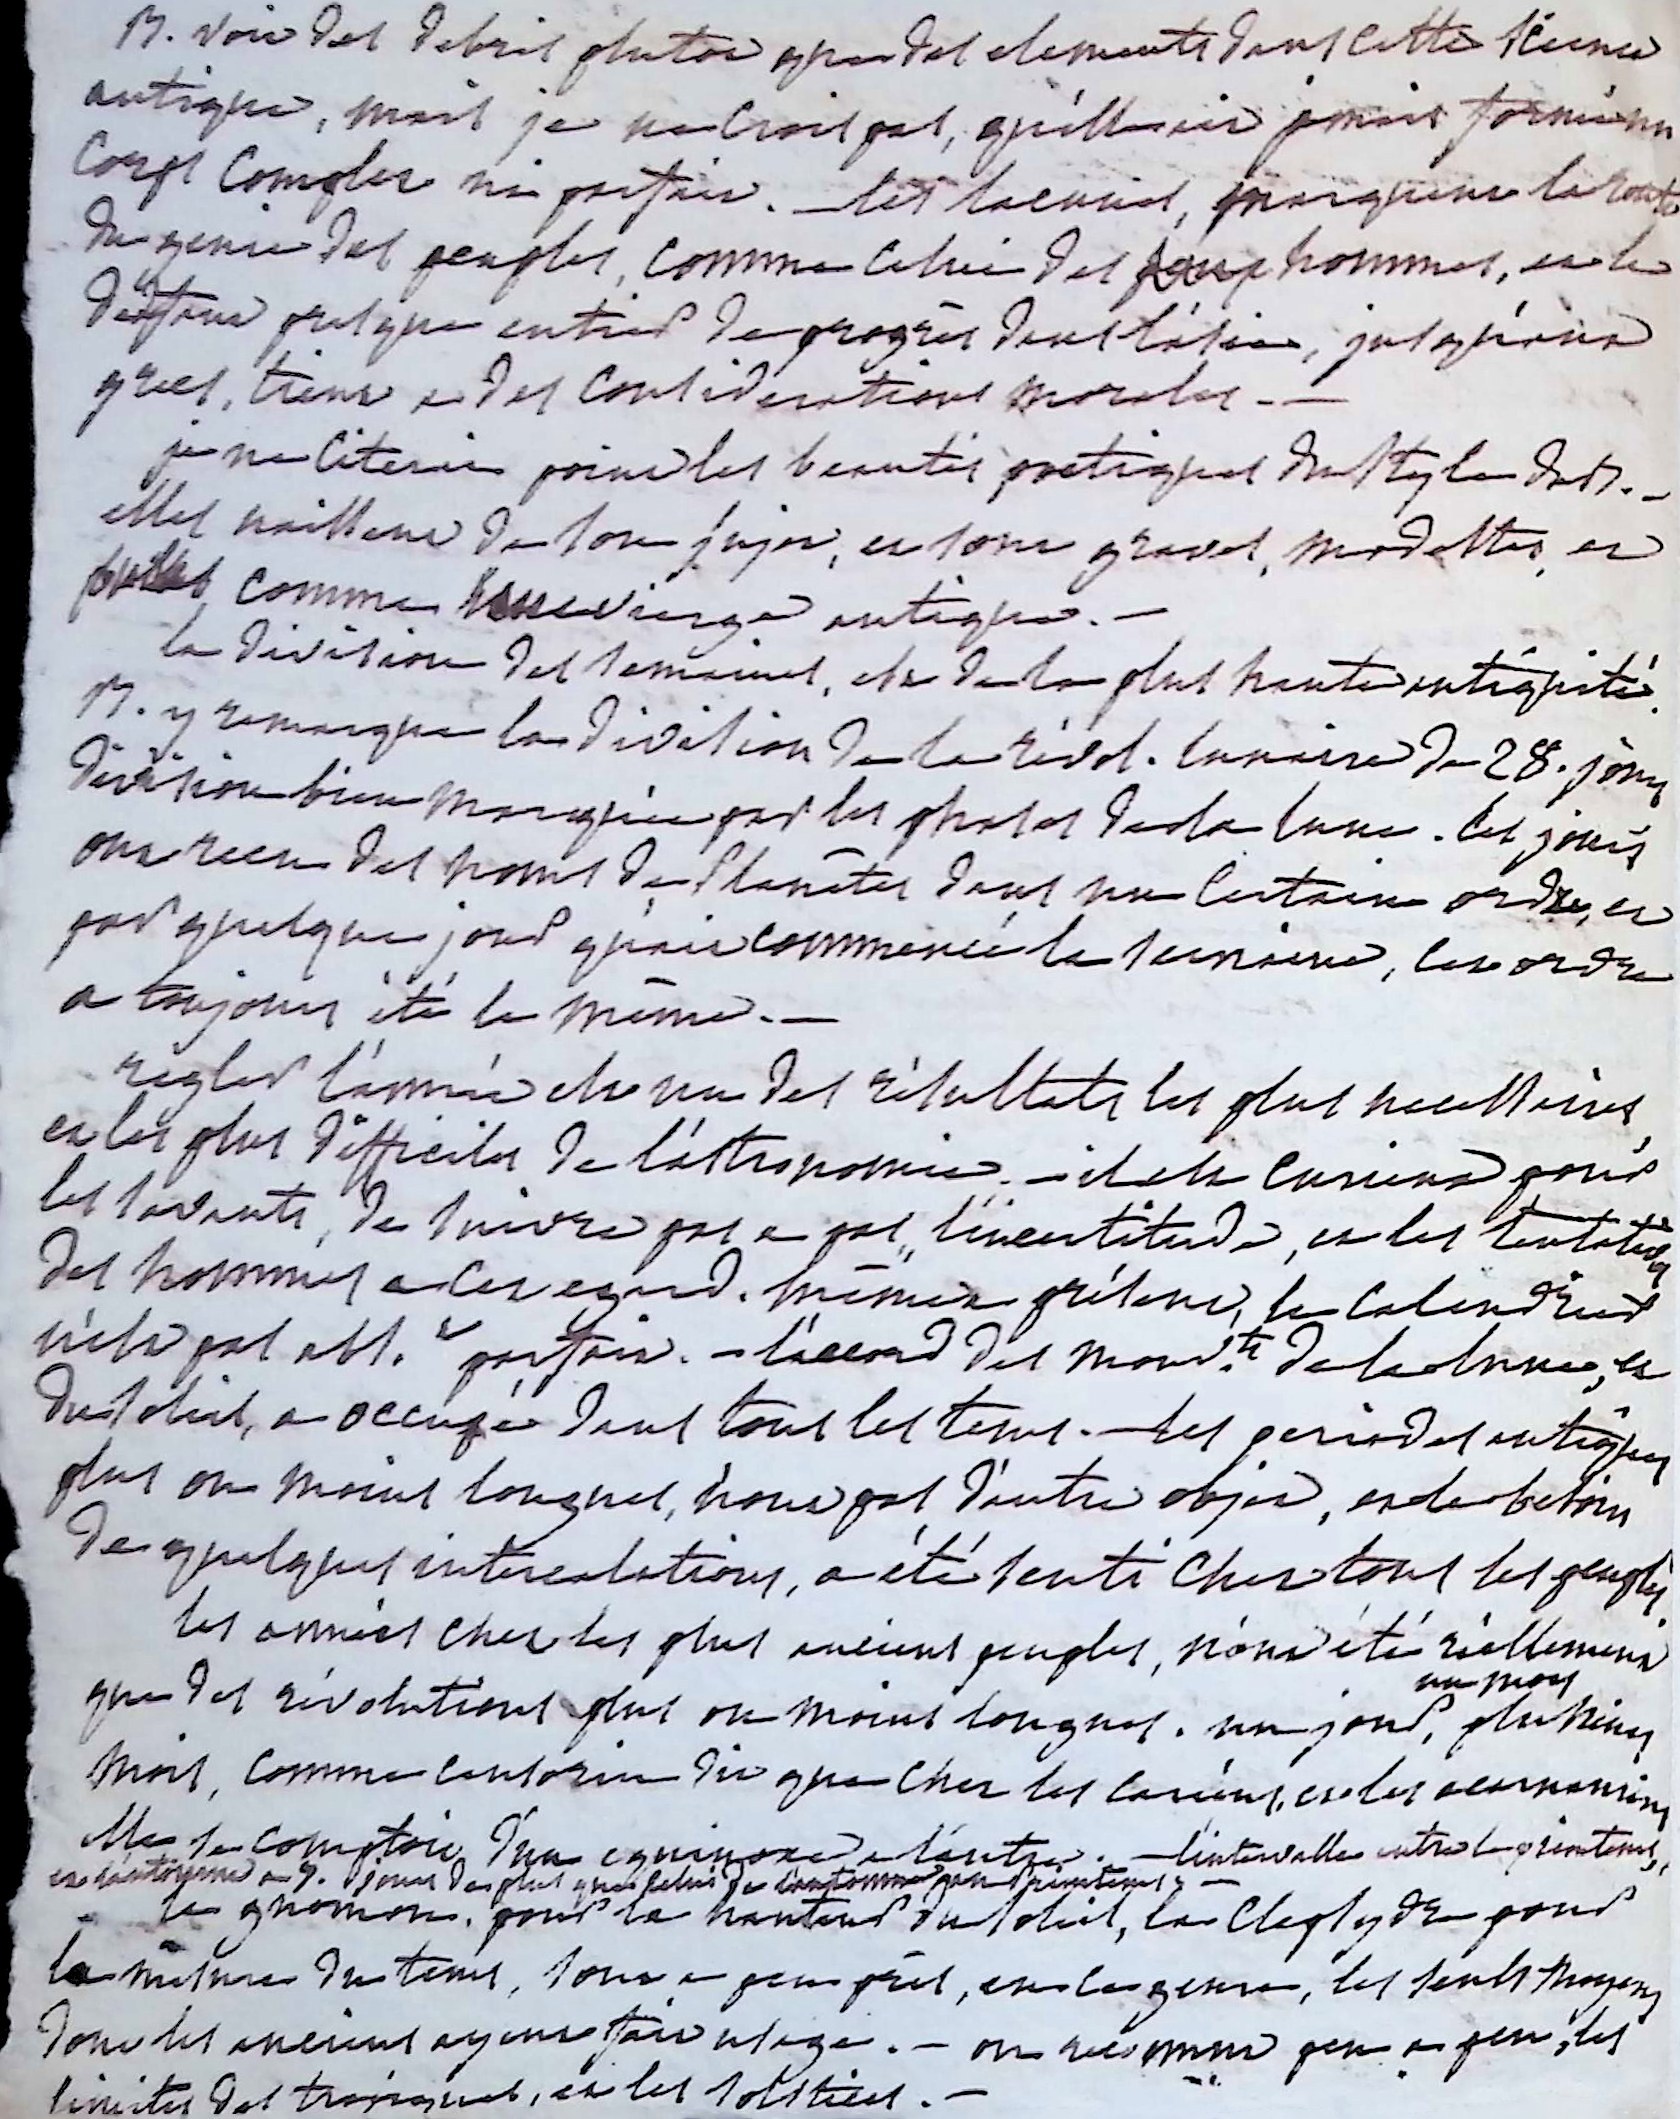 B. voit des debris plutot que des elements dans cette science
antique, mais je ne crois pas, qu'elle ait jamais formé un
corps complet ni parfait. — les lacunes, marquent la route
du genie des peuples, comme celui des hommes, et le
defaut presque entier de progrès dans l'asie, jusqu'aux
grecs, tient a des considerations morales. —
je ne citerai point les beautés poetiques du style de B. —
elles naissent de son sujet, et sont graves, modestes, et
comme une vierge antique. —
la division des semaines, est de la plus haute antiquité.
B. y remarque la division de la révol. lunaire de 28. jours
division bien marquée par les phases de la lune. les jours
ont recu des noms de Planètes dans un certain ordre, et
par quelque jour qu'ait commencé la semaine, cet ordre
a toujours été le même. —
regler l'année est un des résultats les plus necessaires,
et les plus difficiles de l'astronomie. — il est curieux pour
les savants, de suivre pas a pas, l'incertitude, et les tentatives
des hommes a cet egard. même a présent, le calendrier
n'est pas abs.t parfait. — l'accord des mouv.ts de la lune, et
du soleil, a occupé dans tous les tems. — les periodes antiques
plus ou moins longues, n'ont pas d'autre objet, et le besoin
de quelques intercalations, a été senti chez tous les peuples.
les années chez les plus anciens peuples, n'ont été réellement
que des révolutions plus ou moins longues. un jour, un mois plusieurs
mois, comme censorin dit que chez les cariens, et les acarnaniens
elle se comptoit d'un equinoxe a l'autre. — l'intervalle entre le printems,
et l'automne a 7. jours de plus que celui de l'automne au printems. —
le gnomon, pour la hauteur du soleil, la Clepsydre pour
la mesure du tems, sont a peu près, en ce genre, les seuls moyens
dont les anciens ayent fait usage. — on reconnut peu a peu, les
limites des tropiques, et les solstices. —